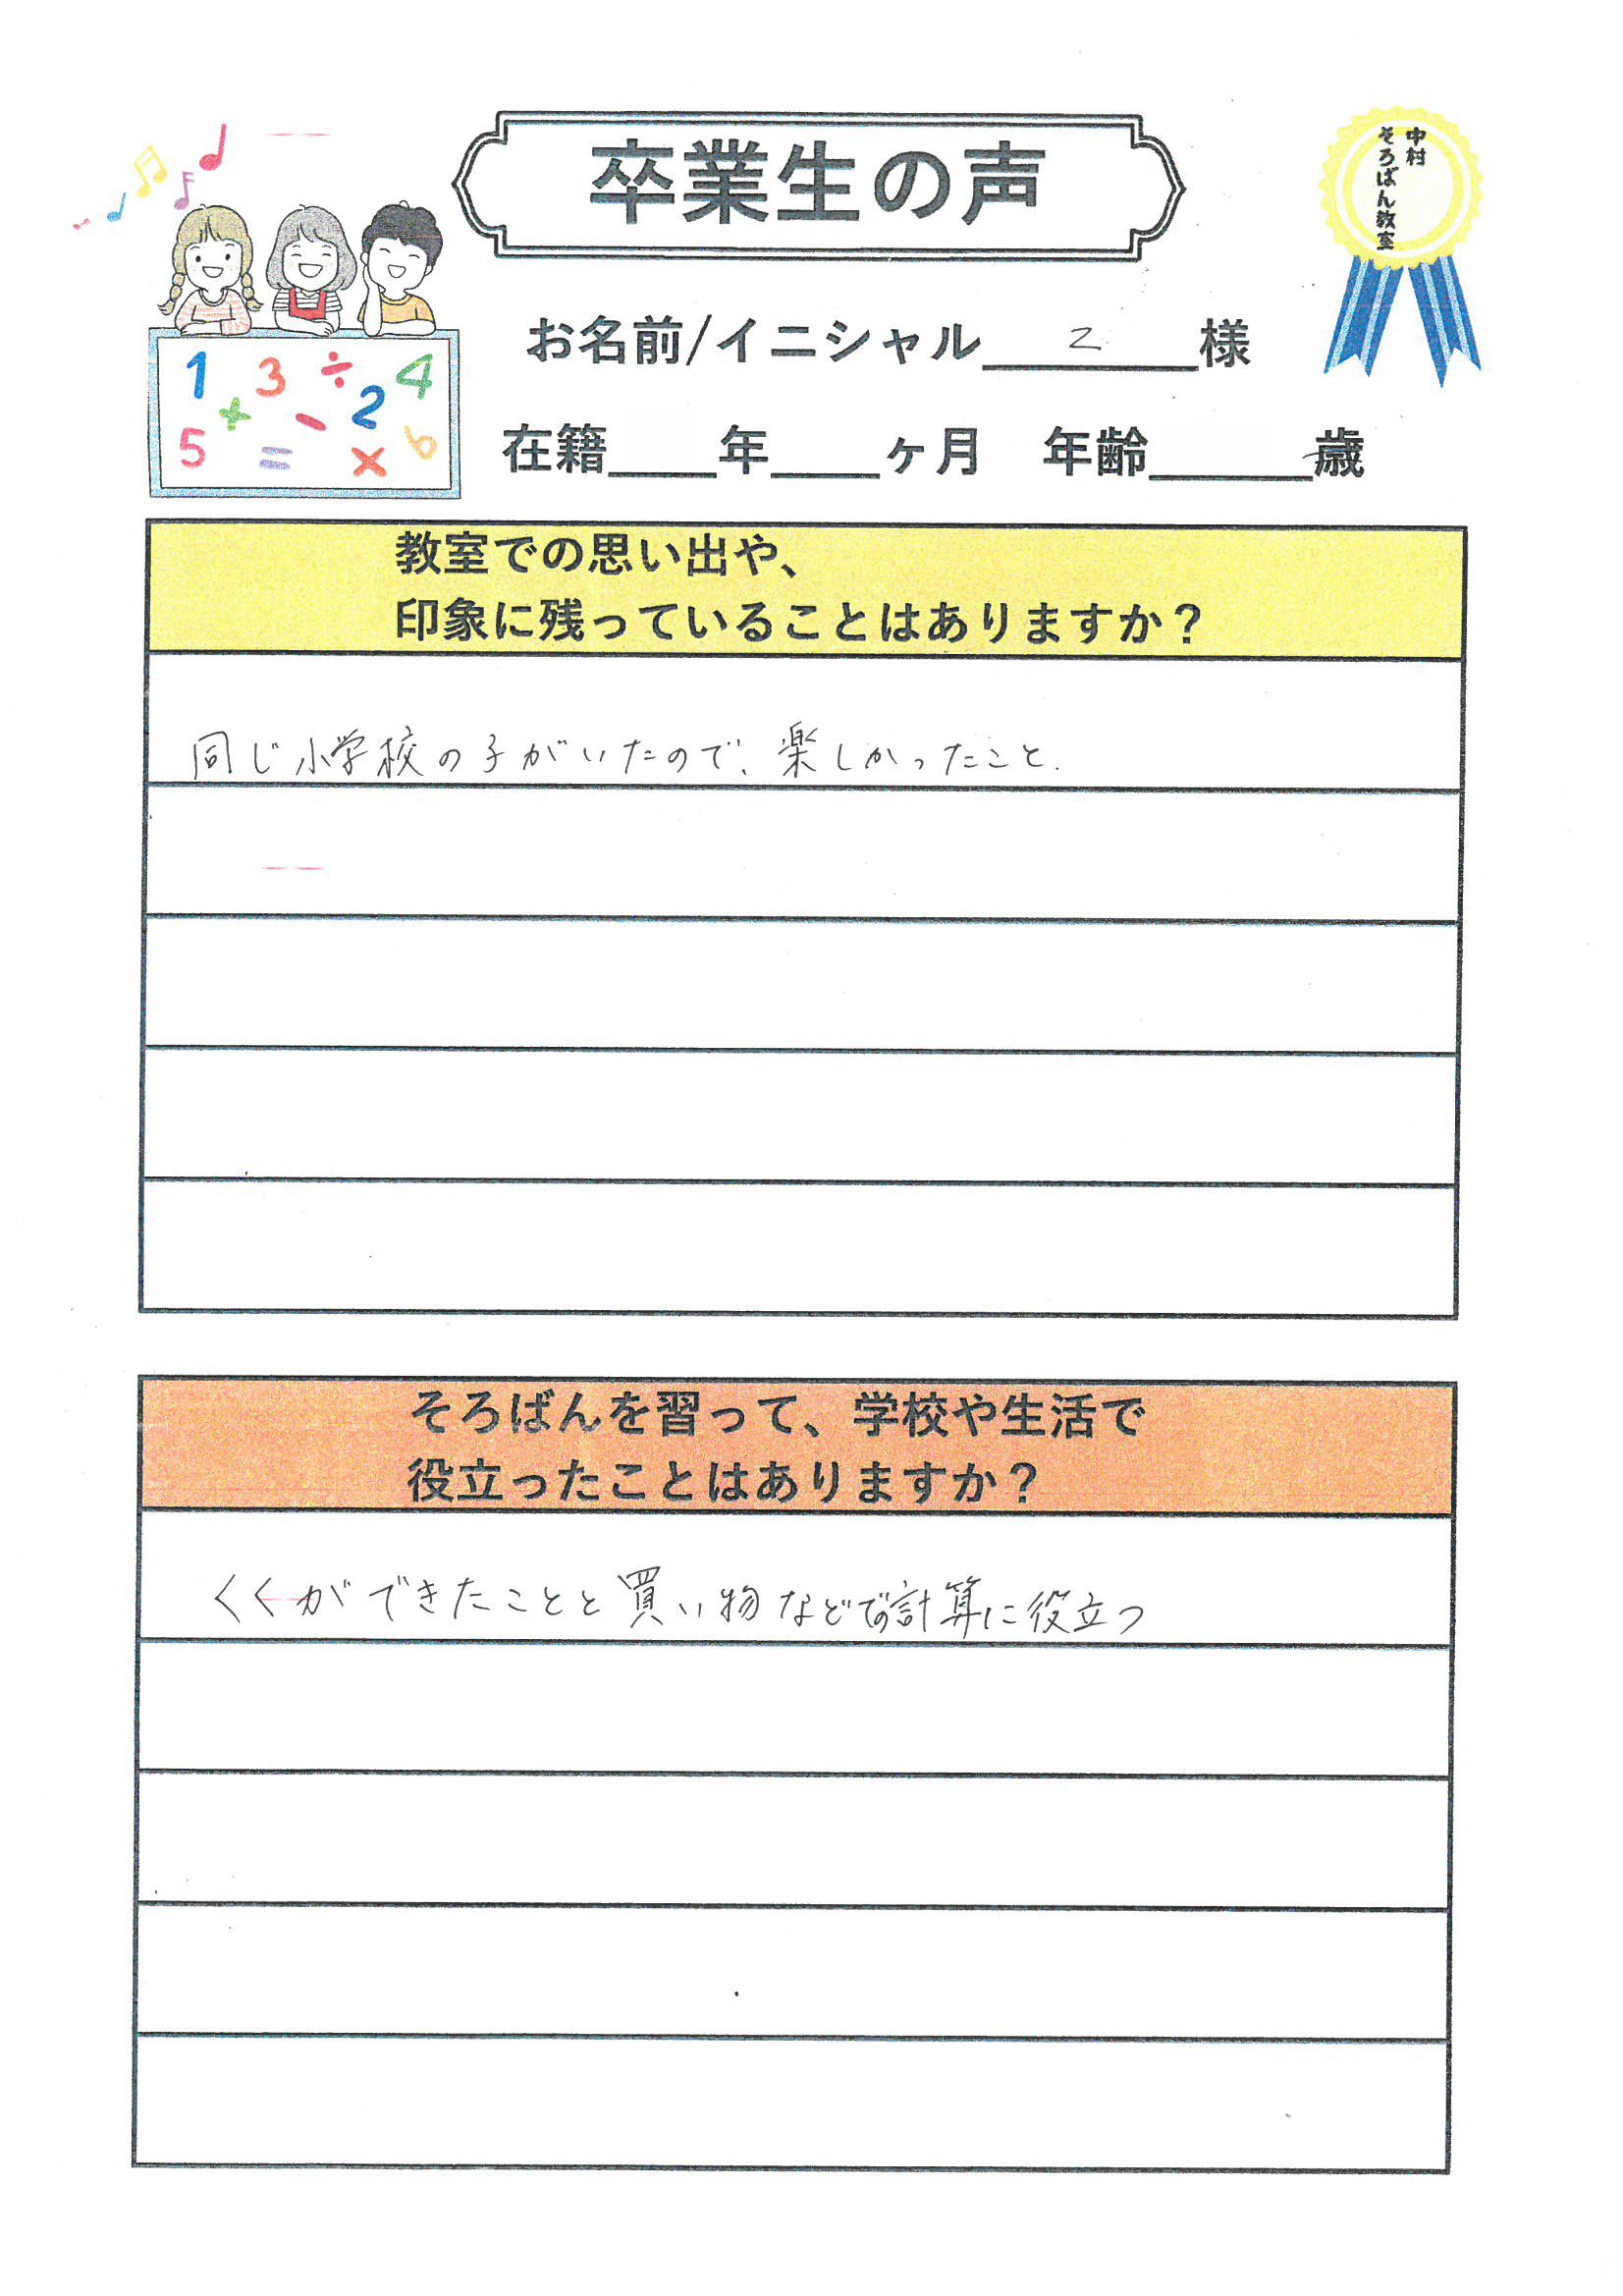 卒業生の声
中村
そろばん教室
お名前/イニシャル Z 様
在籍____年____ヶ月 年齢______歳
1 3 ÷ 2 4
5 + = - × 6
教室での思い出や、
印象に残っていることはありますか？
同じ小学校の子がいたので、楽しかったこと.
そろばんを習って、学校や生活で
役立ったことはありますか？
くくができたことと買い物などでの計算に役立つ